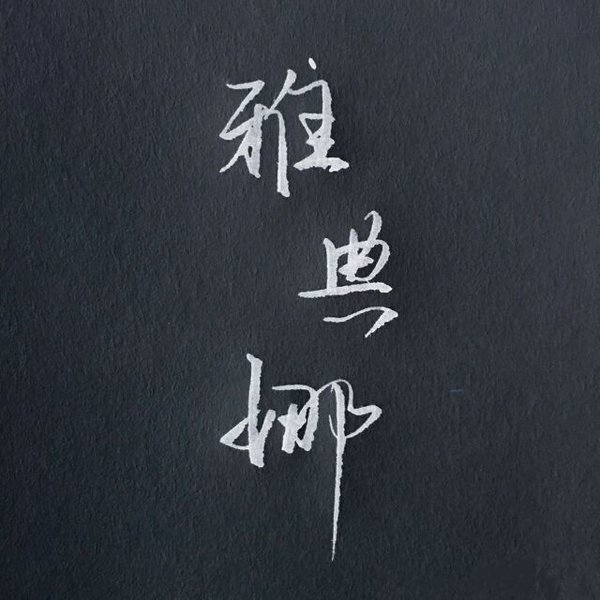 雅典娜